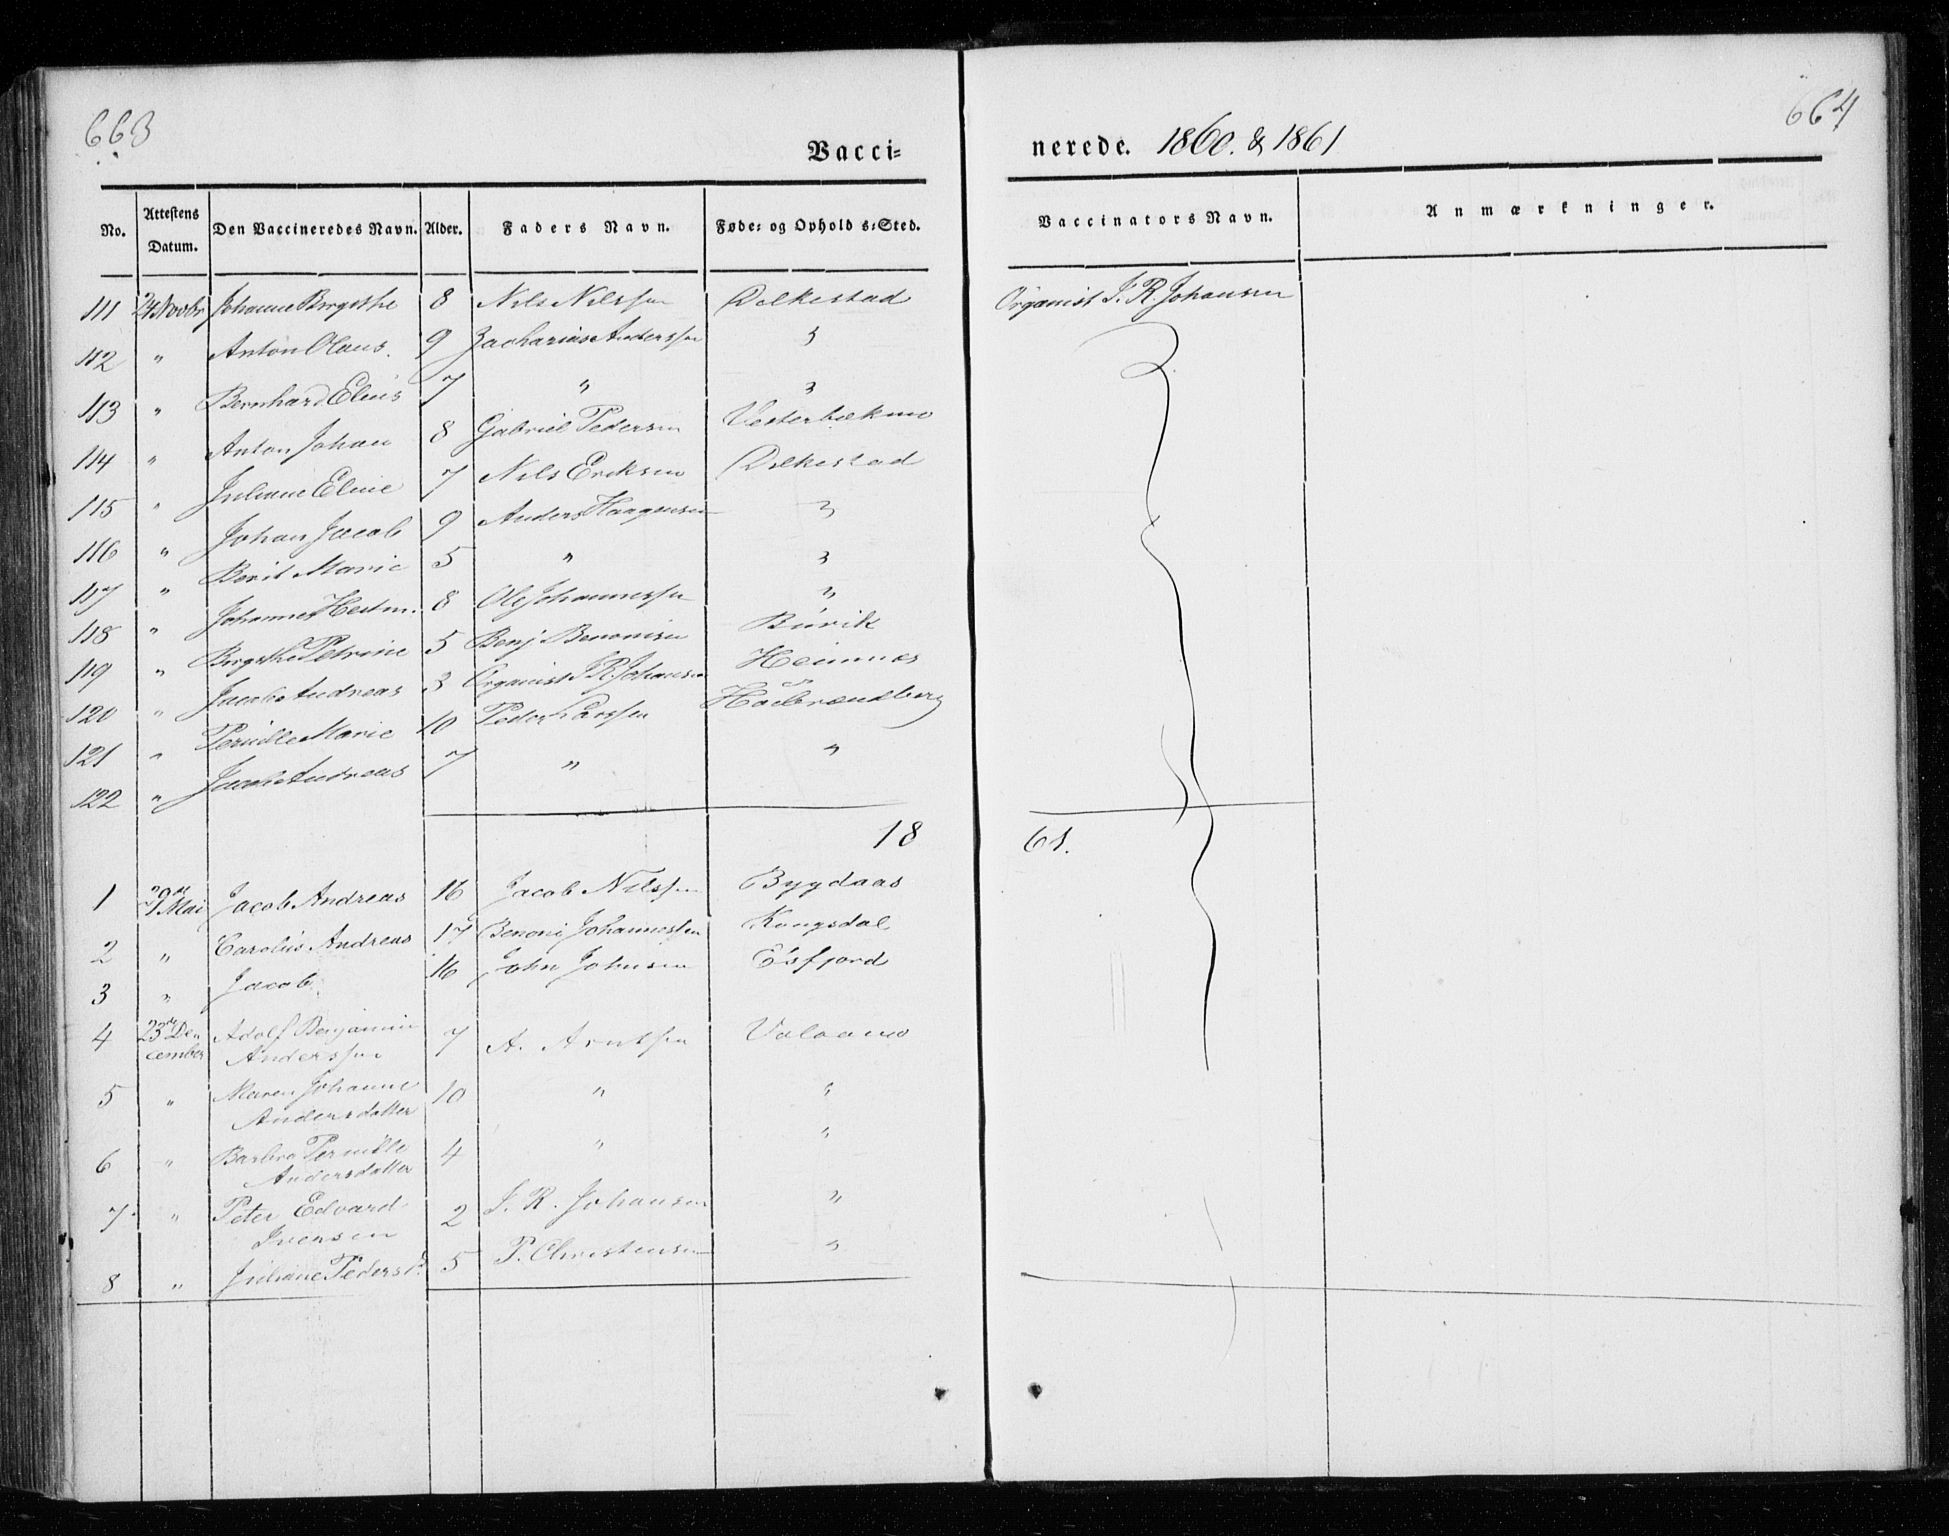 663
664
Vacci=
nerede. 1860. & 1861
No. Attestens Datum. Den Vaccineredes Navn. Alder. Faders Navn. Føde- og Ophold s-Sted. Vaccinators Navn. Anmærkninger.
111 24 Novbr Johanne Birgithe 8 Nils Nilssen Delkestad Organist I. R. Johansen
112 " Anton Olaus. 9 Zacharias Anderssen "
113 " Bernhard Elius 7 " "
114 " Anton Johan 8 Gabriel Pedersen Vesterbekmo
115 " Juliane Eline 7 Nils Eriksen Delkestad
116 " Johan Jacob 9 Anders Haagensen "
117 " Berit Marie 5 " "
118 " Johannes Hestm. 8 Ole Johannessen "
119 " Birgithe Petrine 5 Benj Benonisen Burik
120 " Jacob Andreas 3 Organist I R. Johansen Hemnæs
121 " Pernille Marie 10 Peder Larssen
122 " Jacob Andreas 7 " "
18 61.
1 29de Mai Jacob Andreas 16 Jacob Nilssen Bygdaas
2 " Carolus Andreas 17 Benoni Johannessen Kongsdal
3 " Jacob 16 John Johnsen Esfjord
4 23de December Adolf Benjamin Anderssen 7 A. Arntsen Valaamo
5 " Maren Johanne Andersdatter 10 " "
6 " Barbro Pernille Andersdatter 4 " "
7 " Peter Edvard Ivensen 2 I. R. Johansen "
8 " Juliane Pedersd. 5 P. Christensen "